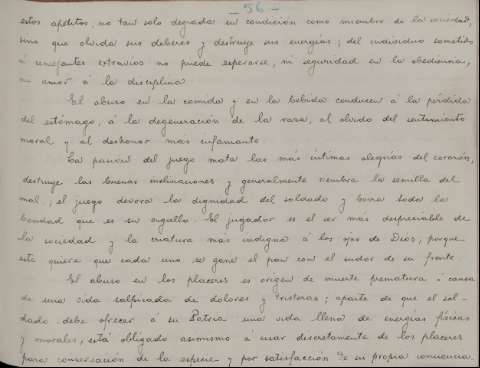 - 56 -
estos apetitos, no tan solo degrada su condición como miembro de la sociedad,
sino que olvida sus deberes y destruye sus energías; del individuo sometido
á semejantes extravios no puede esperarse, ni seguridad en la obediencia,
ni amor á la disciplina.
El abuso en la comida y en la bebida conducen á la pérdida
del estómago, á la degeneración de la raza, al olvido del sentimiento
moral y al deshonor más infamante.
La pasión del juego mata las más íntimas alegrías del corazón,
destruye las buenas inclinaciones y generalmente siembra la semilla del
mal; el juego devora la dignidad del soldado y borra toda la
bondad que es su orgullo. El jugador es el ser más despreciable de
la sociedad y la criatura más indigna á los ojos de Dios; porque
este quiere que cada uno se gane el pan con el sudor de su frente.
El abuso en los placeres es origen de muerte prematura ó causa
de una vida salpicada de dolores y tristezas; aparte de que el sol-
dado debe ofrecer á su Patria una vida llena de energías físicas
y morales, está obligado asimismo a usar discretamente de los placeres
para conservación de la especie y por satisfacción de su propia conciencia.